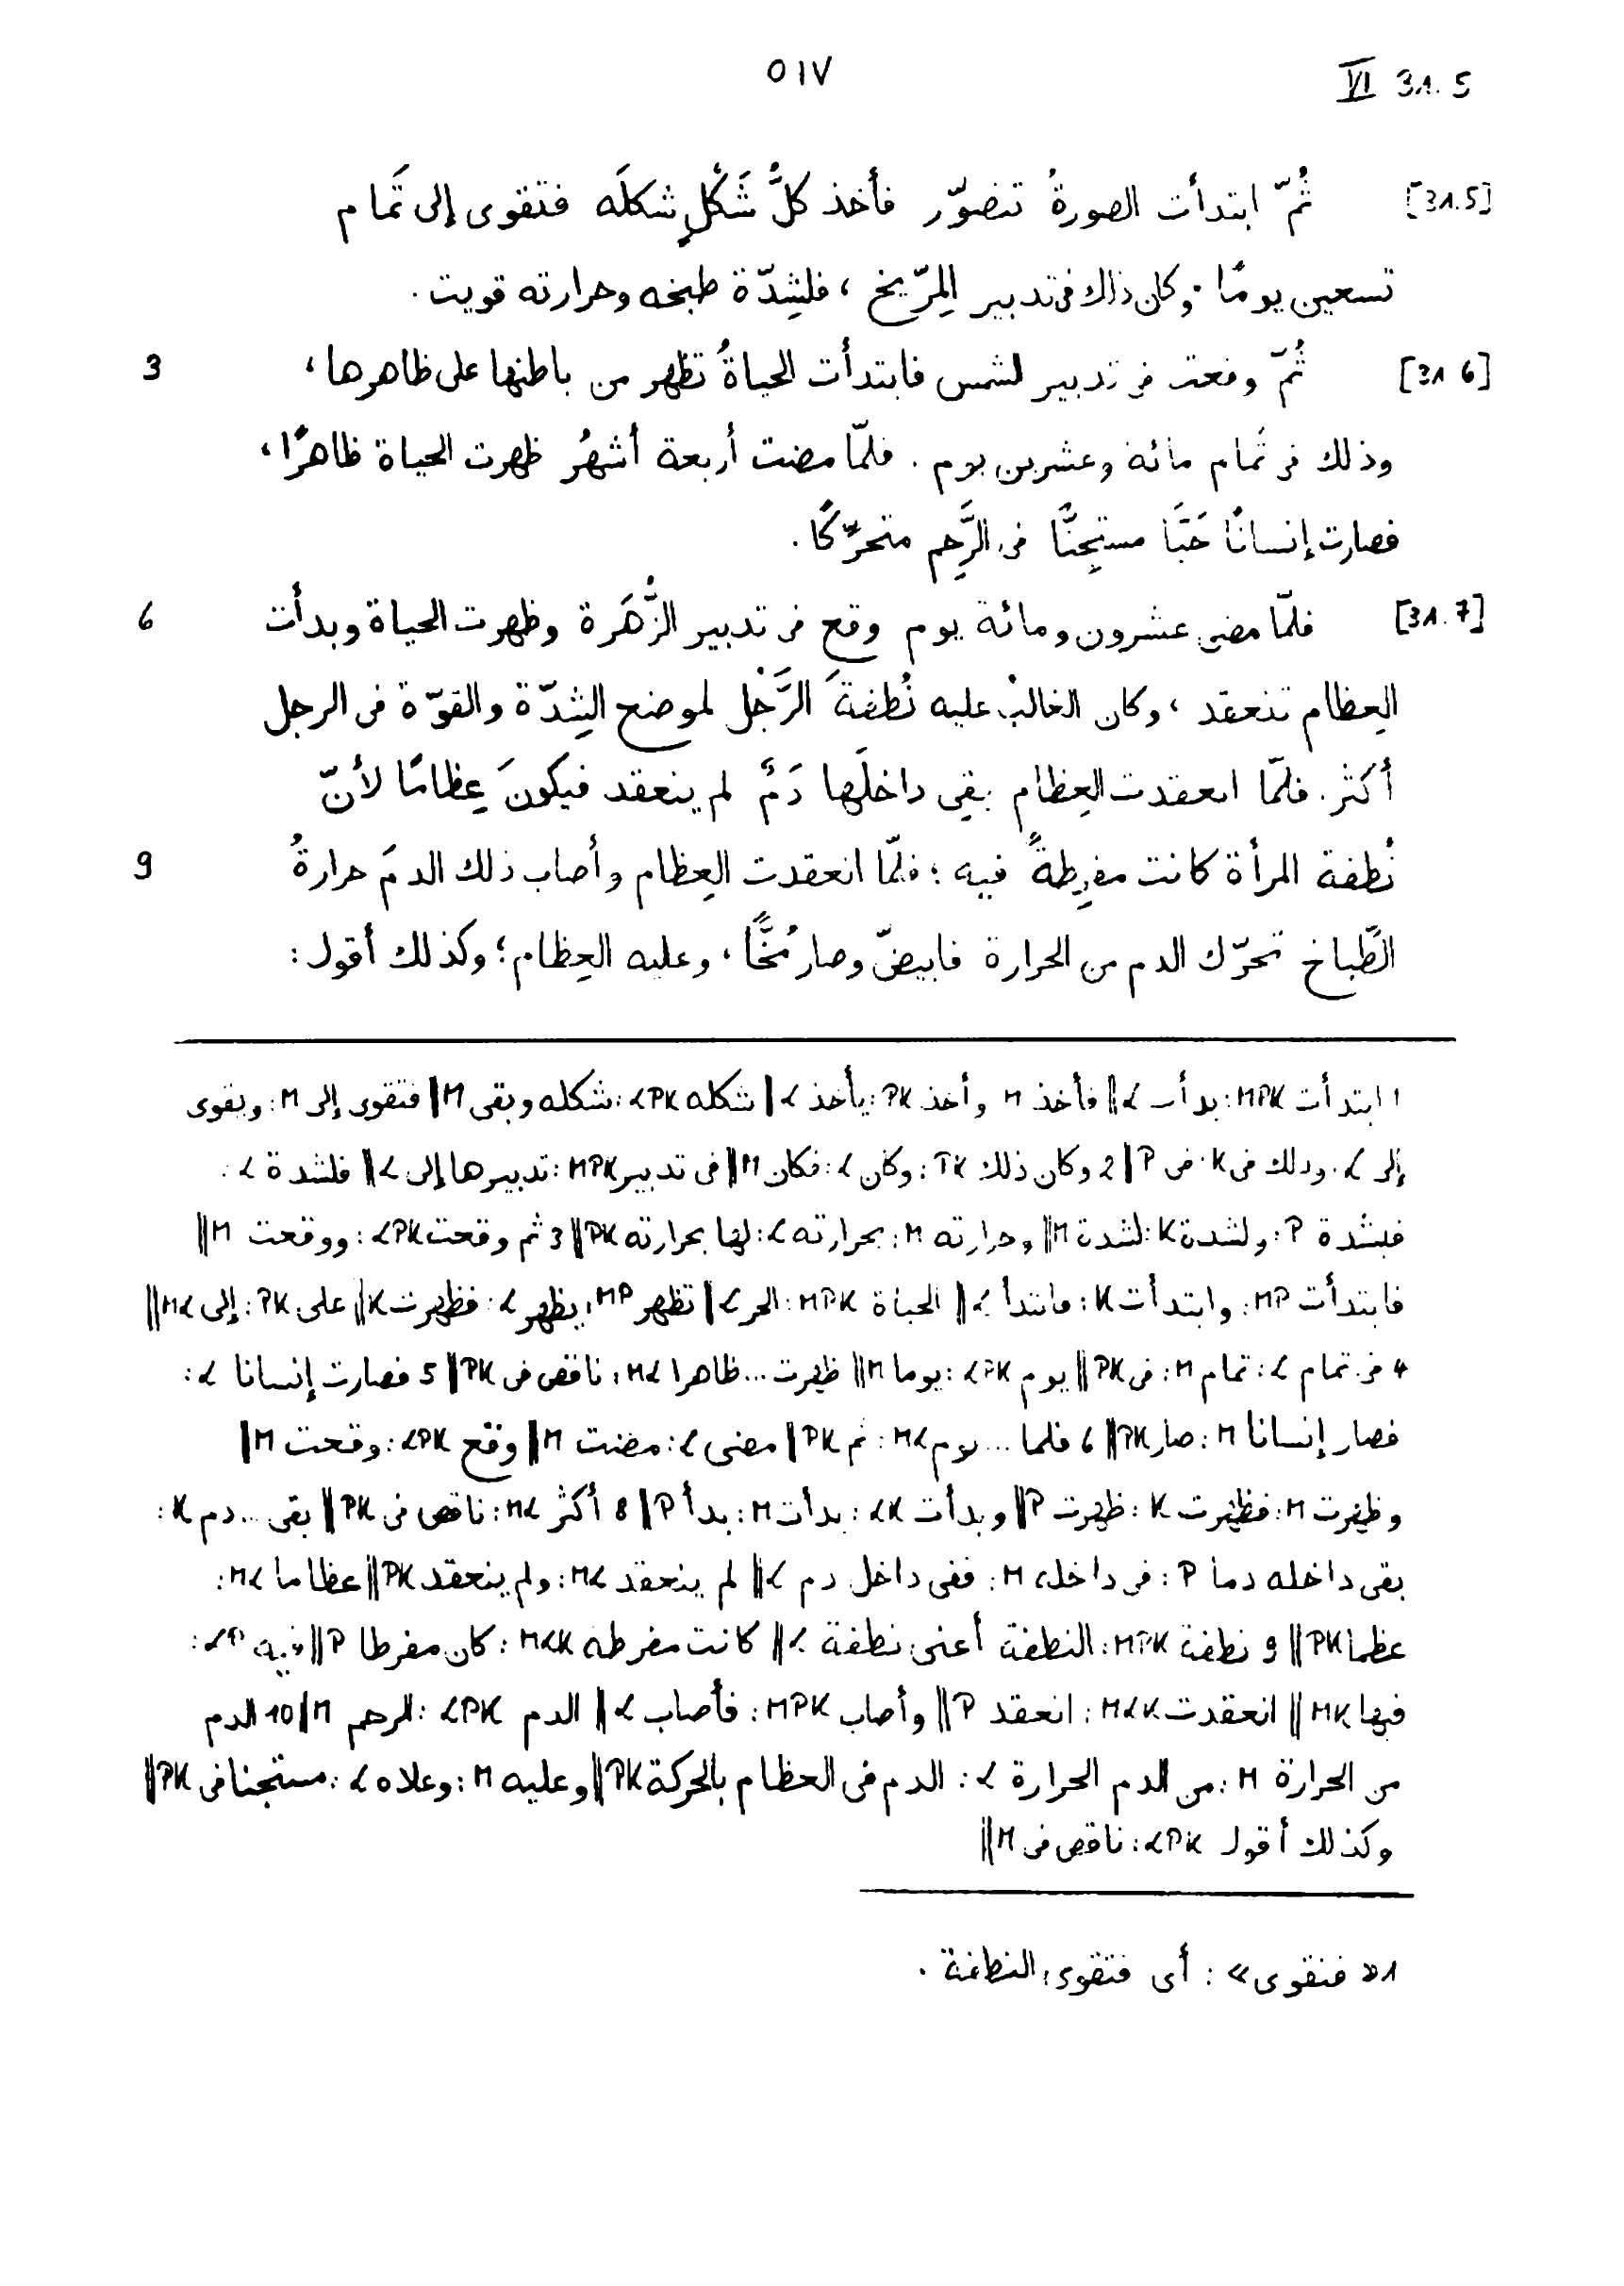 ٥١٧
VI 31.5
[31.5] ثُمّ ابتدأت الصورةُ تتصوّر فأخذ كلُّ شَكْلٍ شكلَه فتقوى إلى تَمام
تسعين يومًا. وكان ذلك فى تدبير المِرّيخ، فلشِدّة طبخه وحرارته قويت.
3 [31.6] ثُمّ وقعت فى تدبير الشمس فابتدأت الحياةُ تظهر من باطنها على ظاهرها،
وذلك فى تَمام مائة وعشرين يوم. فلمّا مضت أربعة أشهُر ظهرت الحياة ظاهرًا،
فصارت إنسانًا حَيًّا مستجِنًّا فى الرَّحِم متحرّكًا.
6 [31.7] فلمّا مضى عشرون ومائة يوم وقع فى تدبير الزُّهَرة وظهرت الحياة وبدأت
العِظام تنعقد، وكان الغالبُ عليه نُطفةَ الرَّجُل لموضع الشِدّة والقوّة فى الرجل
أكثر. فلمّا انعقدت العِظام بقِى داخلَها دَمٌ لم ينعقد فيكونَ عِظامًا لأنّ
9 نُطفة المرأة كانت مفرِطةً فيه؛ فلمّا انعقدت العِظام وأصاب ذلك الدمَ حرارةُ
الطَّباخ تحرّك الدم من الحرارة فابيضّ وصار مُخًّا، وعليه العِظام؛ وكذلك أقول:
١ ابتدأت MPK: بدأت L ‖ فأخذ M وأخذ PK: يأخذ L ‖ شكله LPK: شكله وبقى M ‖ فتقوى إلى M: ويقوى
إلى L: وذلك فى K: فى P ‖ 2 وكان ذلك PK: وكان L: فكان M ‖ فى تدبير MPK: تدبيرها إلى L ‖ فلشدة L:
فبشدة P: ولشدة K: لشدة M ‖ وحرارته M: بحرارته L: لها بحرارته PK ‖ 3 ثم وقعت LPK: ووقعت M ‖
فابتدأت MP: وابتدأت K: فابتدأ L ‖ الحياة MPK: الحر L ‖ تظهر MP: يظهر L: فظهرت K ‖ على PK: إلى ML ‖
4 فى تمام L: تمام M: فى PK ‖ يوم LPK: يوما M ‖ ظهرت ... ظاهرا ML: ناقص فى PK ‖ 5 فصارت إنسانا L:
فصار إنسانا M: صار PK ‖ 6 فلما ... يوم ML: ثم PK ‖ مضى L: مضت M ‖ وقع LPK: وقعت M ‖
وظهرت M: فظهرت K: ظهرت P ‖ وبدأت LK: بدأت M: بدأ P ‖ 8 أكثر ML: ناقص فى PK ‖ بقى ... دم K:
بقى داخله دما P: فى داخله M: ففى داخل دم L ‖ لم ينعقد ML: ولم ينعقد PK ‖ عظاما ML:
عظما PK ‖ 9 نطفة MPK: النطفة أعنى نطفة L ‖ كانت مفرطة MLK: كان مفرطا P ‖ فيه LP:
فيها MK ‖ انعقدت MLK: انعقد P ‖ وأصاب MPK: فأصاب L ‖ الدم LPK: الرحم M ‖ 10 الدم
من الحرارة M: من الدم الحرارة L: الدم فى العظام بالحركة PK ‖ وعليه M: وعلاه L: مستجنا فى PK ‖
وكذلك أقول LPK: ناقص فى M ‖
١ «فتقوى»: أى فتقوى النطفة.